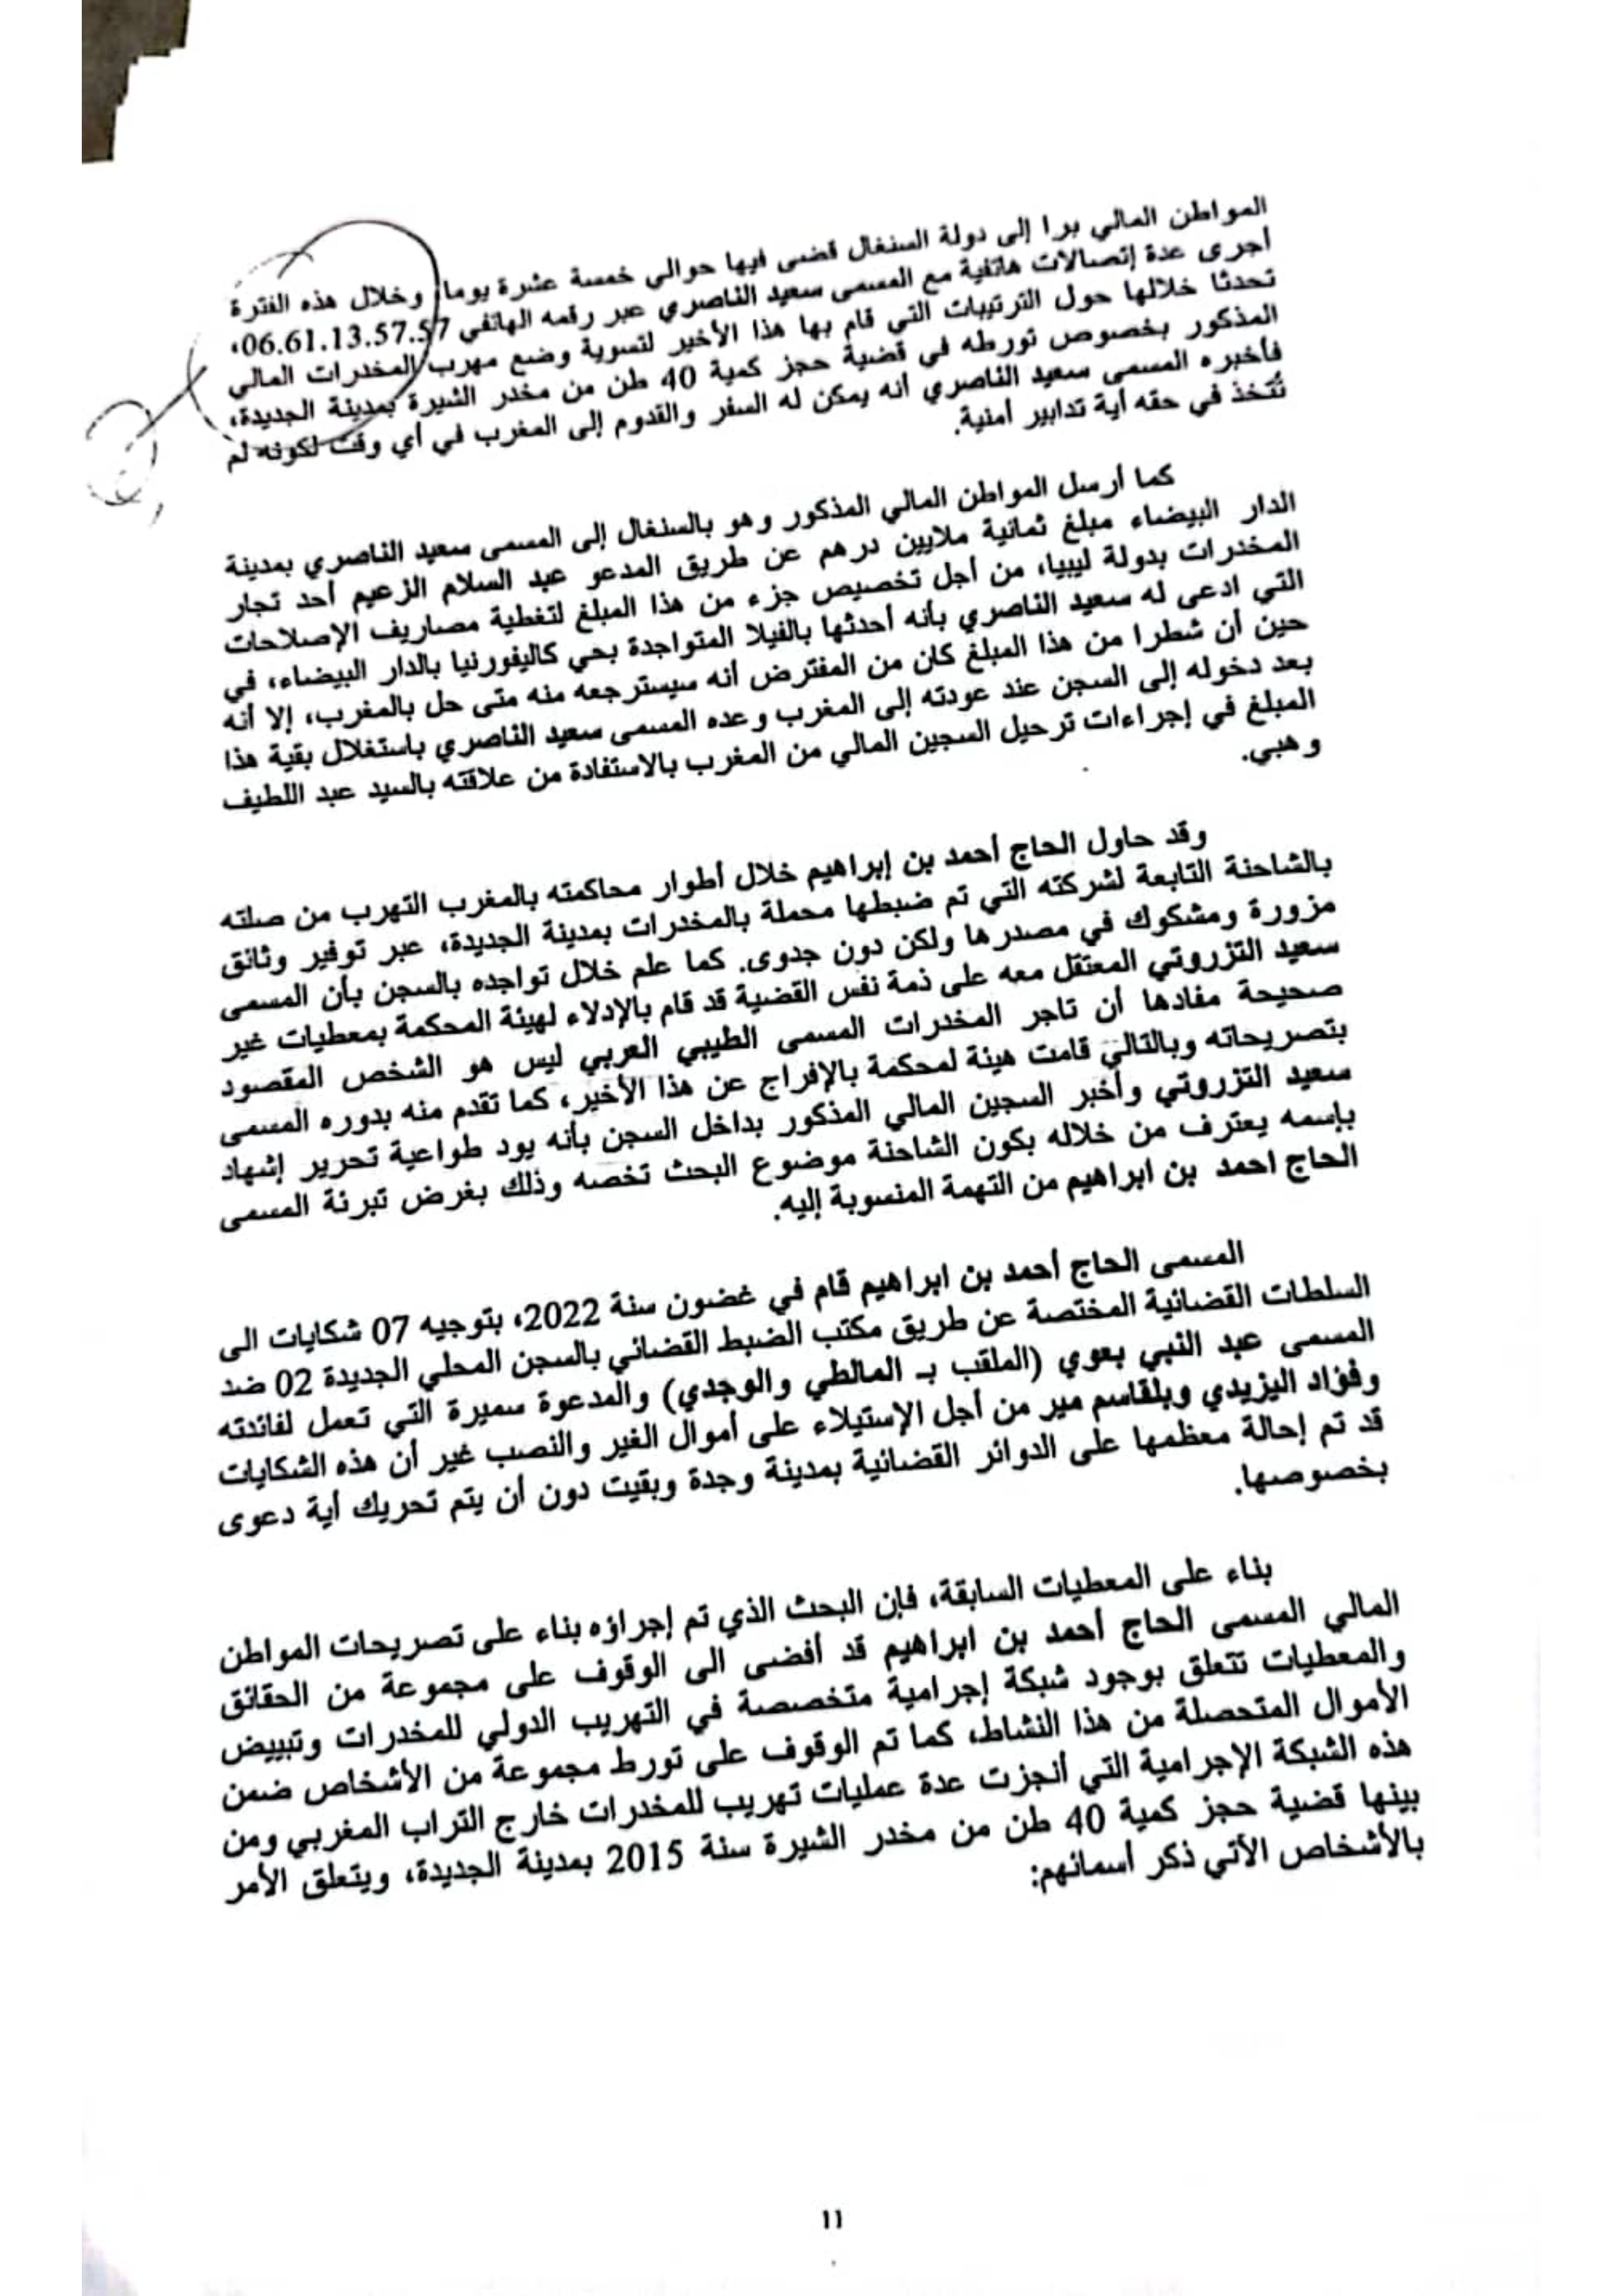 المواطن المالي برا إلى دولة السنغال قضى فيها حوالي خمسة عشرة يوما، وخلال هذه الفترة
أجرى عدة إتصالات هاتفية مع المسمى سعيد الناصري عبر رقمه الهاتفي 06.61.13.57.57،
تحدثا خلالها حول الترتيبات التي قام بها هذا الأخير لتسوية وضع مهرب المخدرات المالي
المذكور بخصوص تورطه في قضية حجز كمية 40 طن من مخدر الشيرة بمدينة الجديدة،
فأخبره المسمى سعيد الناصري أنه يمكن له السفر والقدوم إلى المغرب في أي وقت لكونه لم
تُتخذ في حقه أية تدابير أمنية.
كما أرسل المواطن المالي المذكور وهو بالسنغال إلى المسمى سعيد الناصري بمدينة
الدار البيضاء مبلغ ثمانية ملايين درهم عن طريق المدعو عبد السلام الزعيم أحد تجار
المخدرات بدولة ليبيا، من أجل تخصيص جزء من هذا المبلغ لتغطية مصاريف الإصلاحات
التي ادعى له سعيد الناصري بأنه أحدثها بالفيلا المتواجدة بحي كاليفورنيا بالدار البيضاء، في
حين أن شطرا من هذا المبلغ كان من المفترض أنه سيسترجعه منه متى حل بالمغرب، إلا أنه
بعد دخوله إلى السجن عند عودته إلى المغرب وعده المسمى سعيد الناصري باستغلال بقية هذا
المبلغ في إجراءات ترحيل السجين المالي من المغرب بالاستفادة من علاقته بالسيد عبد اللطيف
وهبي.
وقد حاول الحاج أحمد بن إبراهيم خلال أطوار محاكمته بالمغرب التهرب من صلته
بالشاحنة التابعة لشركته التي تم ضبطها محملة بالمخدرات بمدينة الجديدة، عبر توفير وثائق
مزورة ومشكوك في مصدرها ولكن دون جدوى. كما علم خلال تواجده بالسجن بأن المسمى
سعيد التزروتي المعتقل معه على ذمة نفس القضية قد قام بالإدلاء لهيئة المحكمة بمعطيات غير
صحيحة مفادها أن تاجر المخدرات المسمى الطيبي العربي ليس هو الشخص المقصود
بتصريحاته وبالتالي قامت هيئة لمحكمة بالإفراج عن هذا الأخير، كما تقدم منه بدوره المسمى
سعيد التزروتي وأخبر السجين المالي المذكور بداخل السجن بأنه يود طواعية تحرير إشهاد
بإسمه يعترف من خلاله بكون الشاحنة موضوع البحث تخصه وذلك بغرض تبرئة المسمى
الحاج احمد بن ابراهيم من التهمة المنسوبة إليه.
المسمى الحاج أحمد بن ابراهيم قام في غضون سنة 2022، بتوجيه 07 شكايات الى
السلطات القضائية المختصة عن طريق مكتب الضبط القضائي بالسجن المحلي الجديدة 02 ضد
المسمى عبد النبي بعوي (الملقب بـ المالطي والوجدي) والمدعوة سميرة التي تعمل لفائدته
وفؤاد اليزيدي وبلقاسم مير من أجل الإستيلاء على أموال الغير والنصب غير أن هذه الشكايات
قد تم إحالة معظمها على الدوائر القضائية بمدينة وجدة وبقيت دون أن يتم تحريك أية دعوى
بخصوصها.
بناء على المعطيات السابقة، فإن البحث الذي تم إجراؤه بناء على تصريحات المواطن
المالي المسمى الحاج أحمد بن ابراهيم قد أفضى الى الوقوف على مجموعة من الحقائق
والمعطيات تتعلق بوجود شبكة إجرامية متخصصة في التهريب الدولي للمخدرات وتبييض
الأموال المتحصلة من هذا النشاط، كما تم الوقوف على تورط مجموعة من الأشخاص ضمن
هذه الشبكة الإجرامية التي أنجزت عدة عمليات تهريب للمخدرات خارج التراب المغربي ومن
بينها قضية حجز كمية 40 طن من مخدر الشيرة سنة 2015 بمدينة الجديدة، ويتعلق الأمر
بالأشخاص الآتي ذكر أسمائهم:
١١